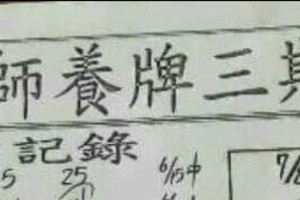 師養牌三期
記錄
5 25 6/15中 7/